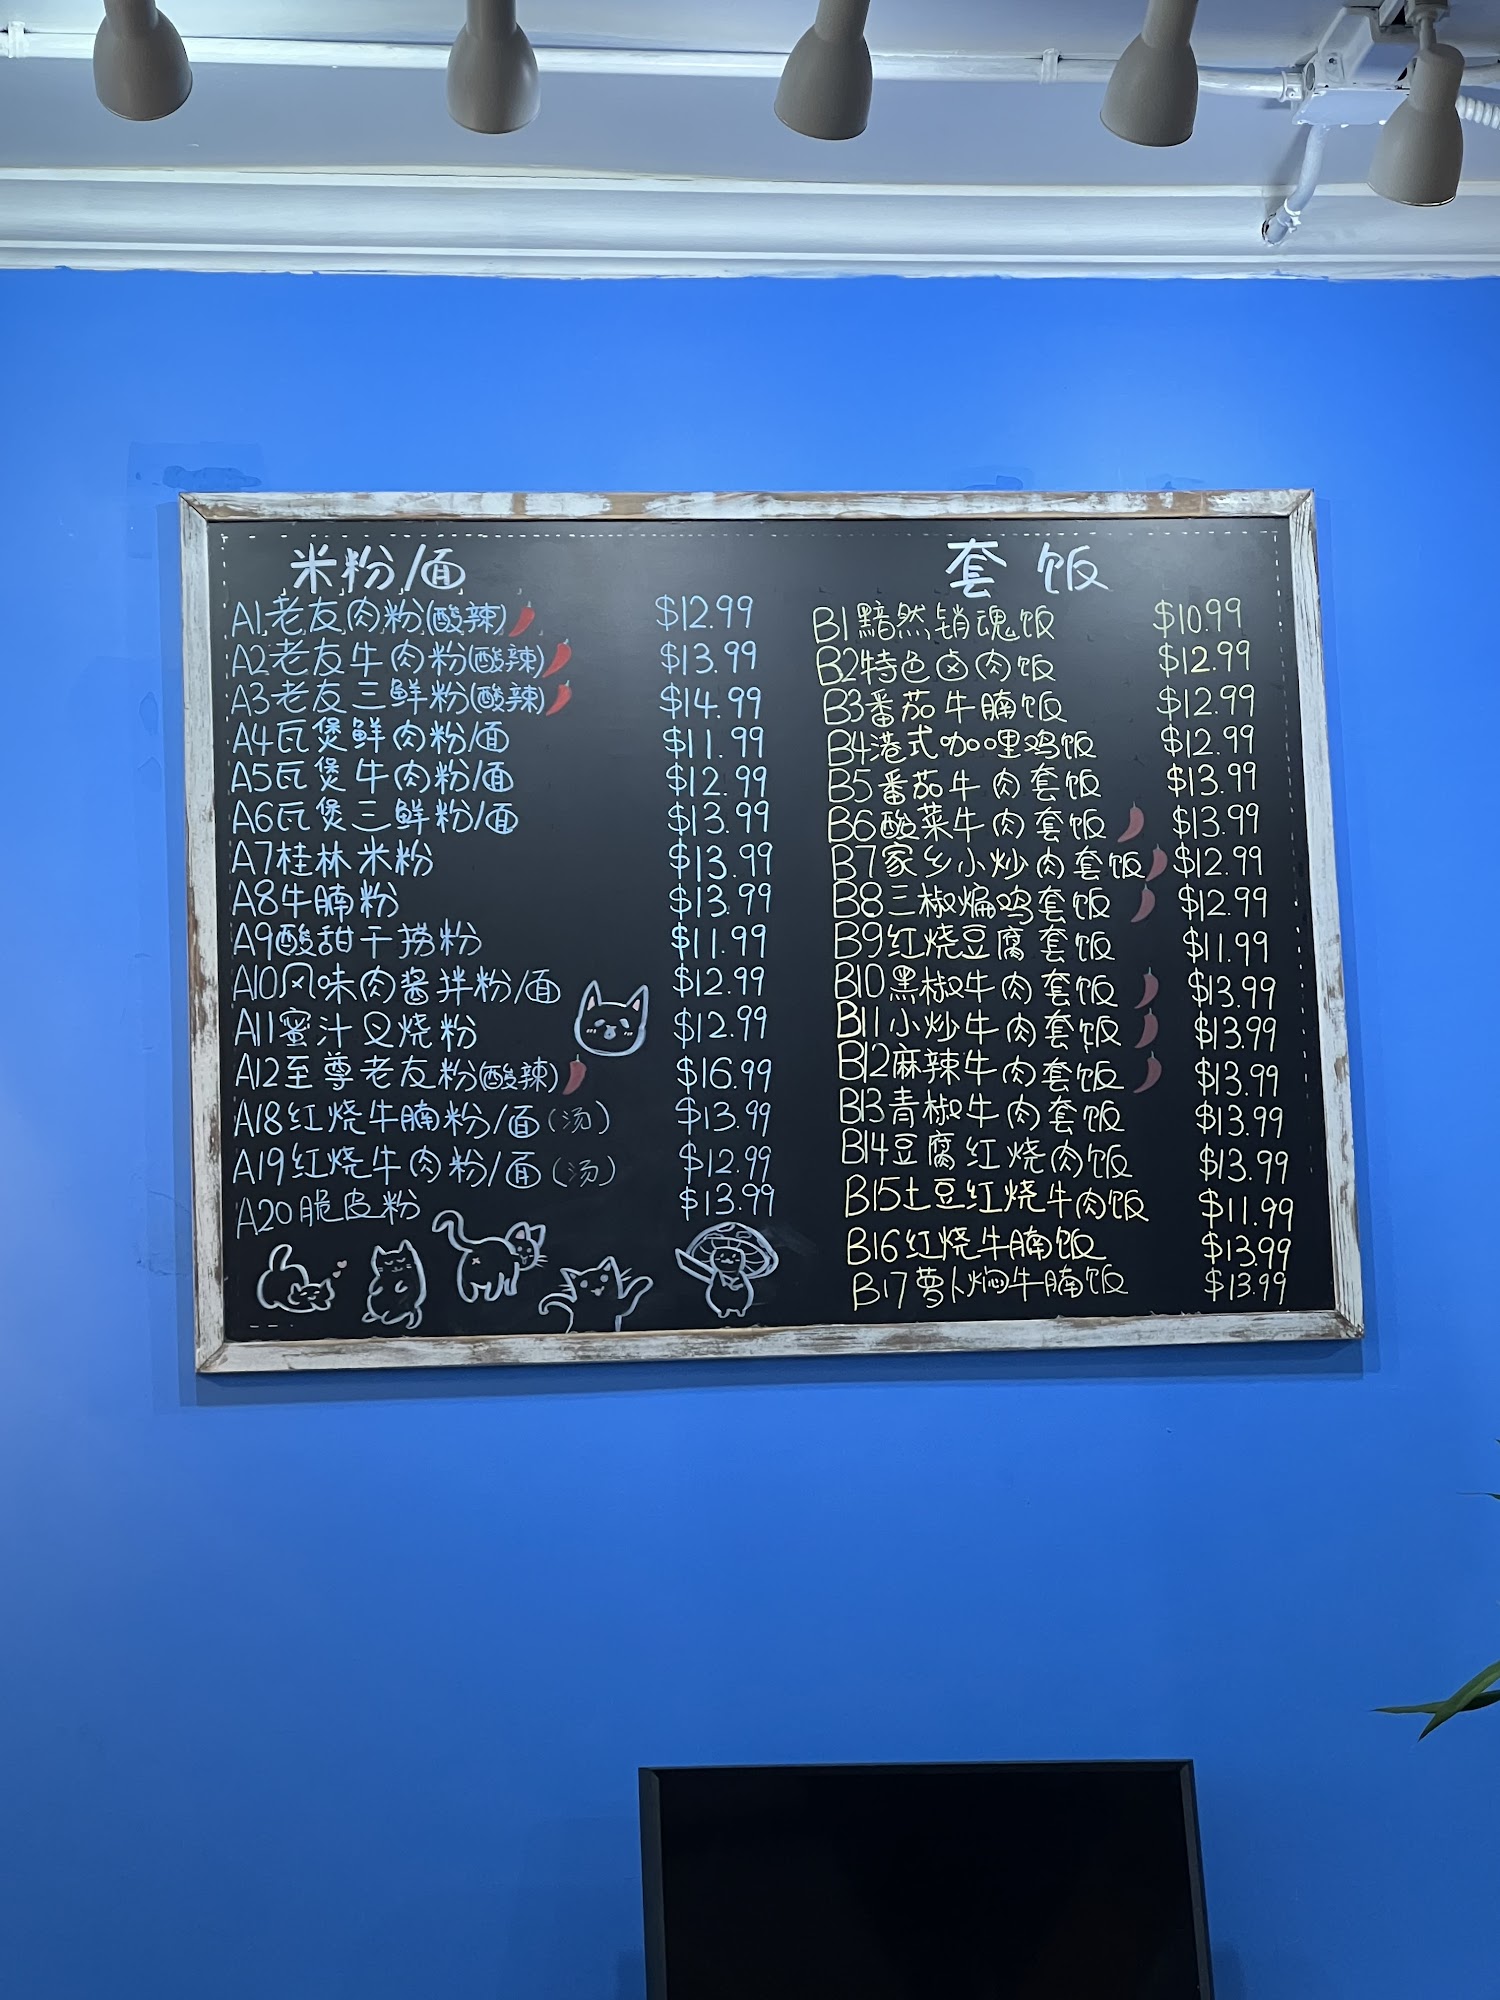 米粉/面
A1老友肉粉(酸辣) $12.99
A2老友牛肉粉(酸辣) $13.99
A3老友三鲜粉(酸辣) $14.99
A4瓦煲鲜肉粉/面 $11.99
A5瓦煲牛肉粉/面 $12.99
A6瓦煲三鲜粉/面 $13.99
A7桂林米粉 $13.99
A8牛腩粉 $13.99
A9酸甜干捞粉 $11.99
A10风味肉酱拌粉/面 $12.99
A11蜜汁叉烧粉 $12.99
A12至尊老友粉(酸辣) $16.99
A18红烧牛腩粉/面(汤) $13.99
A19红烧牛肉粉/面(汤) $12.99
A20脆皮粉 $13.99
套饭
B1黯然销魂饭 $10.99
B2特色卤肉饭 $12.99
B3番茄牛腩饭 $12.99
B4港式咖哩鸡饭 $12.99
B5番茄牛肉套饭 $13.99
B6酸菜牛肉套饭 $13.99
B7家乡小炒肉套饭 $12.99
B8三椒煸鸡套饭 $12.99
B9红烧豆腐套饭 $11.99
B10黑椒牛肉套饭 $13.99
B11小炒牛肉套饭 $13.99
B12麻辣牛肉套饭 $13.99
B13青椒牛肉套饭 $13.99
B14豆腐红烧肉饭 $13.99
B15土豆红烧牛肉饭 $11.99
B16红烧牛腩饭 $13.99
B17萝卜焖牛腩饭 $13.99